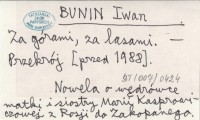 BUNIN Iwan
Za górami, za lasami. —
Przekrój [przed 1988].
BT/007/0424
Nowela o wędrówce
matki i siostry Marii Kasprowi-
czowej z Rosji do Zakopanego.